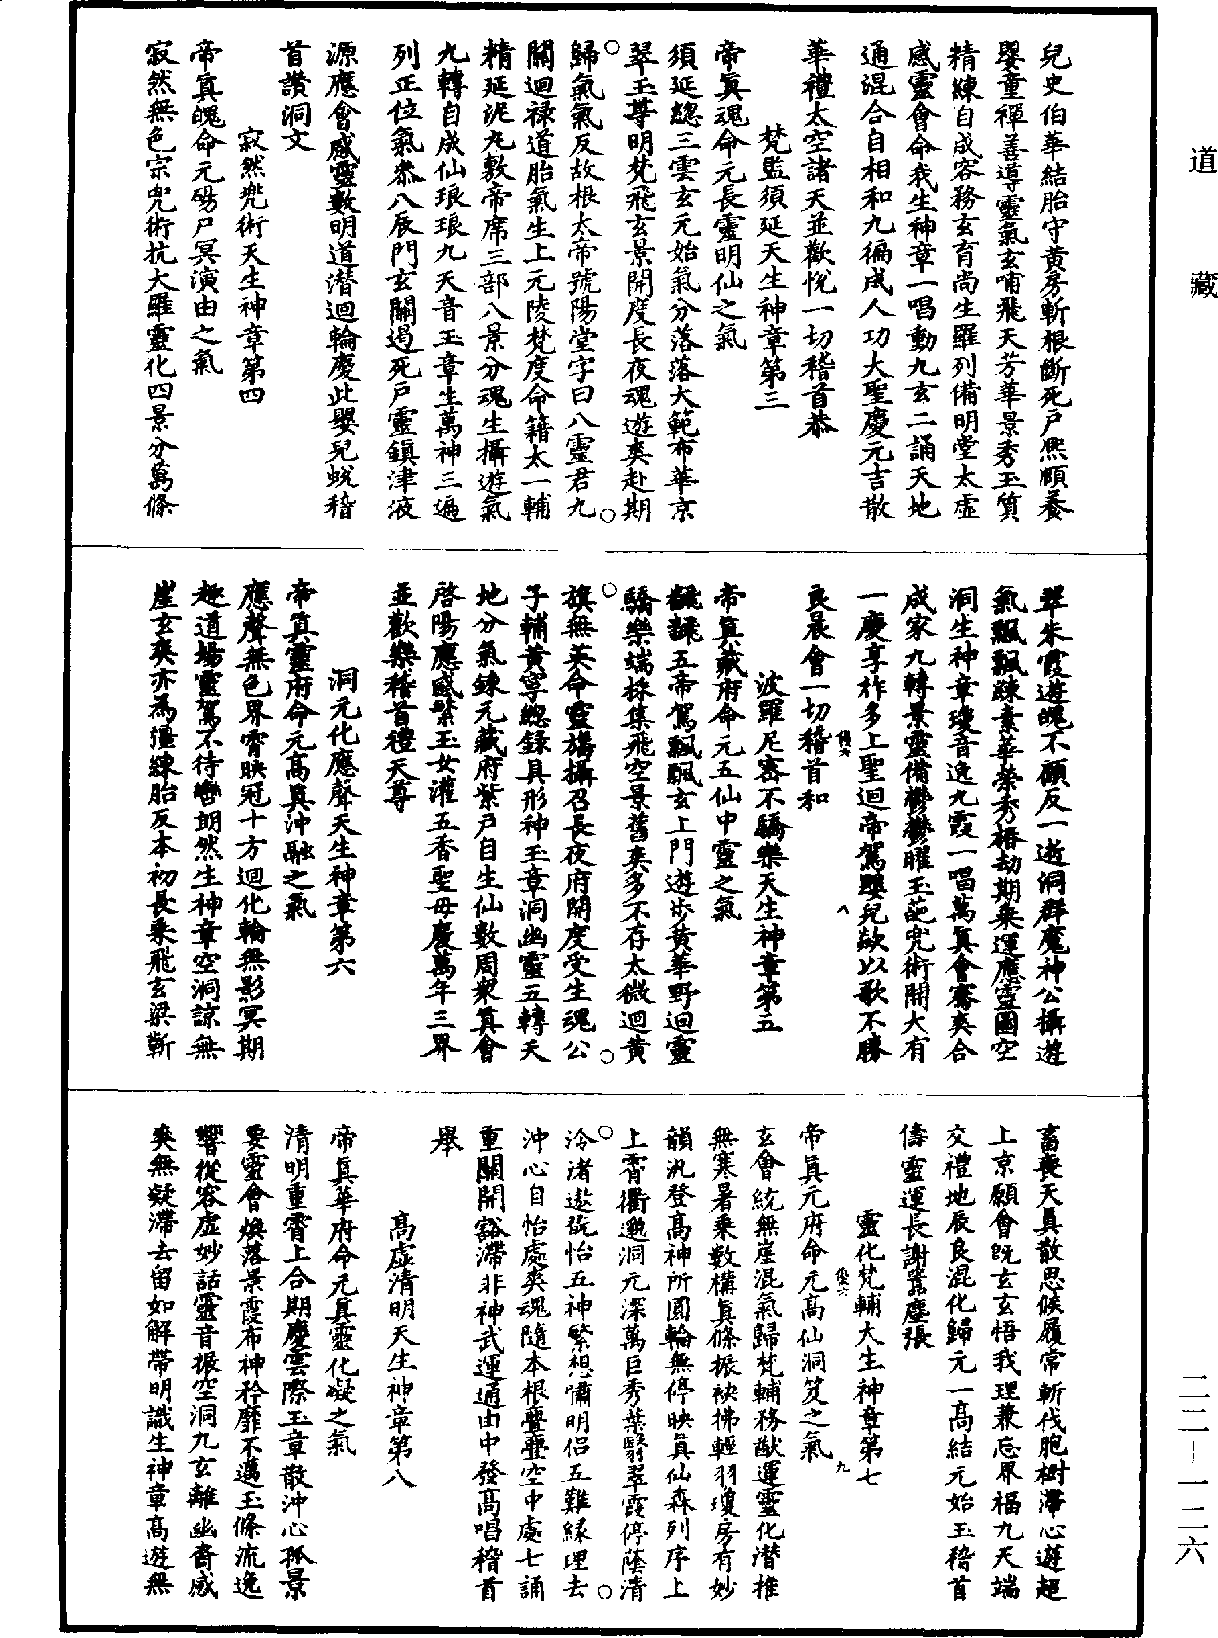 道藏
兒史伯華結胎守黃房斬根斷死戶熙頤養
嬰童禪善導靈氣玄哺飛天芳華景秀玉質
精練自成容務玄育尚生羅列備明堂太虛
感靈會命我生神章一唱動九玄二誦天地
通混合自相和九徧成人功大聖慶元吉散
華禮太空諸天並歡悅一切稽首恭
梵監須延天生神章第三
帝真魂命元長靈明仙之氣
須延總三雲玄元始氣分落落大範布華京
翠玉尊明梵飛玄景開度長夜魂遊爽赴期
歸氣氣反故根太帝號陽堂字曰八靈君九
關迴祿道胎氣生上元陵梵度命籍太一輔
精延泥丸敷帝席三部八景分魂生攝遊氣
九轉自成仙琅琅九天音玉章生萬神三遍
列正位氣叅八辰門玄關遏死戶靈鎮津液
源應會感靈數明道潛迴輪慶此嬰兒蛻稽
首讚洞文
寂然兜術天生神章第四
帝真魄命元碭尸冥演由之氣
寂然無色宗兜術抗大羅靈化四景分萬條
翠朱霞遊魄不顧反一逝洞群魔神公攝遊
氣飄飄練素華榮秀椿劫期乘運應靈圖空
洞生神章瓊音逸九霞一唱萬真會騫爽合
成家九轉景靈備鬱鬱曜玉葩兜術開大有
一慶享祚多上聖迴帝駕嬰兒欻以歌不勝
良晨會一切稽首和
波羅尼密不驕樂天生神章第五
帝真藏府命元五仙中靈之氣
翩翩五帝駕飄飄玄上門遊步黃華野迴靈
驕樂端採集飛空景舊爽多不存太微迴黃
旗無英命靈旛攝召長夜府開度受生魂公
子輔黃寧總錄具形神玉章洞幽靈五轉天
地分氣鍊元藏府紫戶自生仙數周衆真會
啓陽應感緊玉女灌五香聖母慶萬年三界
並歡樂稽首禮天尊
洞元化應聲天生神章第六
帝真靈府命元高真沖融之氣
應聲無色界霄映冠十方迴化輪無影冥期
趣道場靈駕不待轡朗然生神章空洞諒無
崖玄爽亦為彊練胎反本初長乘飛玄梁斬
畜喪天真散思候履常斬伐胞樹滯心遊超
上京願會既玄玄悟我理兼忘界福九天端
交禮地辰良混化歸元一高結元始玉稽首
儔靈運長謝囂塵張
靈化梵輔大生神章第七
帝真元府命元高仙洞笈之氣
玄會統無崖混氣歸梵輔務猷運靈化潛推
無寒暑乘數構真條振袂拂輕羽瓊房有妙
韻汎登高神所圓輪無停映真仙森列序上
上霄衢邈洞元深萬巨秀葉翳翠霞停蔭清
泠渚遨翫怡五神繁想嘯明侶五難緣理去
沖心自怡處爽魂隨本根亹亹空中處七誦
重關開豁滯非神武運通由中發高唱稽首
舉
高虛清明天生神章第八
帝真華府命元真靈化凝之氣
清明重霄上合期慶雲際玉章散沖心孤景
要靈會煥落景霞布神矜靡不邁玉條流逸
響從容虛妙話靈音振空洞九玄離幽裔感
爽無凝滯去留如解帶明識生神章高遊無
二二—一二六